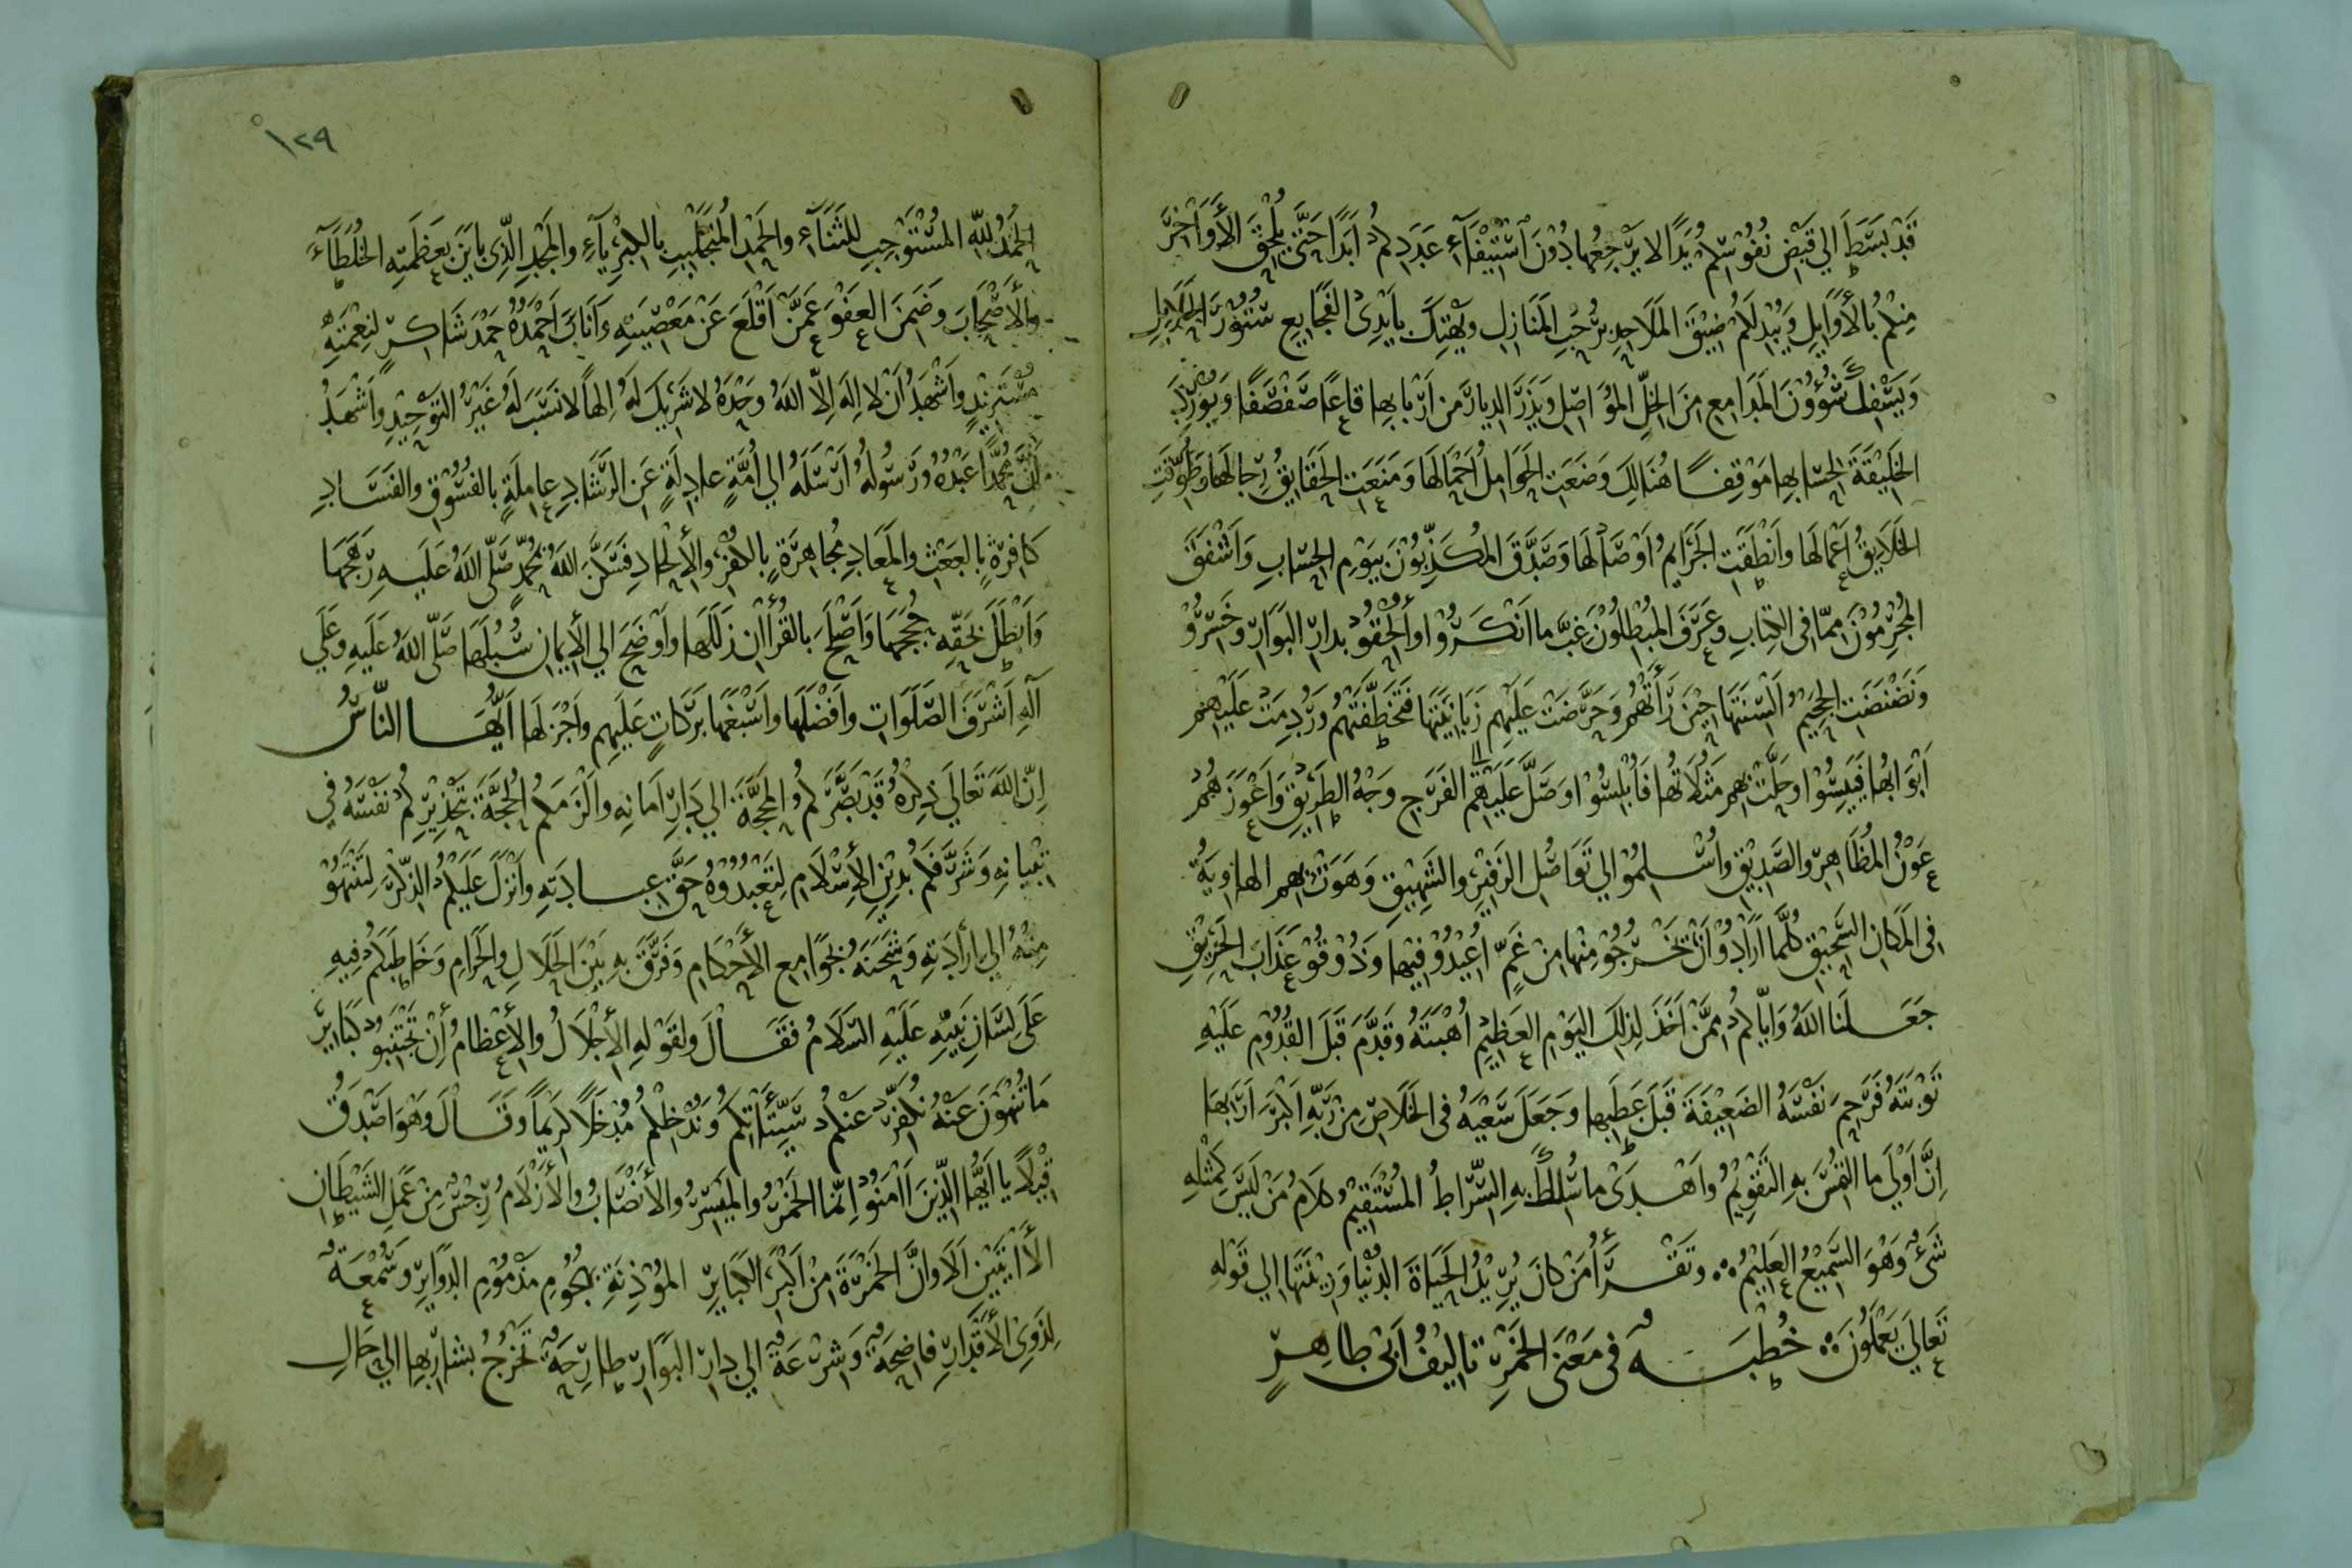 قَدْ بَسَطَ الي قَبْضِ نُفُوْسِكُمْ يَدًا لا يَرْجِعُها دُوْنَ اسْتِيْفَآءِ عَدَدِكُمُ اَبَدًا حَتَّى يُلْحِقَ الأَوَاخِرَ
مِنْكُم بُالأَوَايِلِ وَيُبْدِلَكُمْ ضِيْقَ المَلاَحِدِ بِرُحْبِ المَنَازِلِ ويَهْتِكَ بِاَيْدِى الفَجَايِعِ سُتُوْرَ الحَلاَيِلِ
وَيَسْفِكَ شُؤُوْنَ المَدَامِعِ مِنَ الخِلِّ المُوَاصِلِ وَيَذَرَ الدِيارَ مِن اَرْبابِها قاعًا صَفْصَفًا وَيُوْرِدَ
الخَلِيْقَةَ لِحِسَابِها مَوْقِفًا هُنَالِكَ وَضَعَتِ الحَوَامِلُ اَحْمَالَها وَمَنَعَتِ الحَقَايِقُ رِجالَها وَطُوِّقَتِ
الخَلاَيِقُ اَعْمَالَها وانْطَقَتِ الجَرَايِمُ اَوْصَالَها وَصَدَّقَ المُكَذِّبُوْنَ بِيَوْمِ الحِسَابِ وَاَشْفَقَ
المُجْرِمُوْنَ مِمَّا فى الكِتابِ وعَرَفَ المُبْطِلُوْنَ غِبَّ ما اَنْكَرُوْا وأُلْحِقُوْ بدارِ البَوَارِ وخَسِرُوْ
ونَضْنَضَتِ الجَحِيْمُ اَلْسِنَتَها حِيْنَ رَأَتْهُمْ وَحَرَّضَتْ عَلَيْهِم زَبَانِيَتَها فَتَخَطَّفَتْهُمْ ورُدِمَتْ عَلَيْهِم
اَبْوَابُها فَيَيِسُوْا وحَلَّتْ بِهِم مَثُلاَتُها فَاُبْلِسُوْا وَضَلَّ عَلَيْهِمْ الي الفَرَجِ وَجْهُ الطَرِيْقِ وَاَعْوَزَهُمُ
عَوْنُ المُظَاهِرِ والصَدِيْقِ واُسْلِمُوْا الي تَوَاصُلِ الزَفِيْرِ والشَهِيْقِ وَهَوَتْ بِهِم الهاوِيَةُ
فى المَكَانِ السَحِيْقِ كُلَّما اَرَادُوْ اَنْ يَخْرُجُوْ مِنْها مِنْ غَمٍّ اُعِيْدُوْ فِيْها وَذُوْقُوْ عَذَابَ الحَرِيْقِ
جَعَلَنَا اللهُ وَايَّاكُمْ مِمَّنْ اَخَذَ لِذلِكَ اليَوْمِ العَظِيْمِ اُهْبَتَهُ وقَدَّمَ قَبْلَ القُدُوْمِ عَلَيْهِ
تَوْبَتَهُ فَرَحِمَ نَفْسَهُ الضَعِيْفَةَ قَبْلَ عَطَبِها وجَعَلَ سَعْيَهُ فى الخَلاَصِ مِنْ رَبِّهِ اَكْبَرَ اَرَبِها
اِنَّ اَوْلَي ما التُمِسَ بِهِ التَقْوِيْمُ واَهْدَى ما سُلِكَ بِهِ السِّرَاطُ المُسْتَقِيْمُ كَلاَمُ مَنْ لَيْسَ كَمِثْلِهِ
شَىْءٌ وَهْوَ السَمِيْعُ العَلِيْمُ وتَقْرَأُ مَنْ كانَ يُرِيْدُ الحَيَاةَ الدُنْيا وَزِيْنَتَها الي قَوْلِهِ
تَعالَي يَعْمَلُوْنَ خُطْبَةٌ فى مَعْنَى الخَمْرِ تاليْفُ اَبىْ طاهِرٍ
١٢٩
الحَمْدُ للهِ المُسْتَوْجِبِ للثَنَآءِ والحَمْدِ المُتَجَلْبِبِ بالكِبْرِيَآءِ والمَجْدِ الَّذِى بايَنَ بِعَظَمَتِهِ الخُلَطَآءَ
والأَصْحَابَ وضَمِنَ العَفْوَ عَمَّنْ اَقْلَعَ عَنْ مَعْصِيَتِهِ وَاَنَابَ اَحْمَدُهُ حَمْدَ شَاكِرٍ لنِعْمَتِهِ
مُسْتَزِيْدٍ واَشْهَدُ اَنْ لا اِلهَ اِلاَّ اللهُ وحْدَهُ لا شَرِيْكَ لَهُ اِلهًا لا نَسَبَ لَهُ غَيْرُ التَوْحِيْدِ واَشْهَدُ
اَنَّ مُحَمَّدًا عَبْدُهُ ورَسُوْلُهُ اَرْسَلَهُ الي اُمَّةٍ عادِلَةٍ عَنِ الرَشَادِ عامِلَةٍ بالفُسُوْقِ والفَسَادِ
كافِرَةٍ بالبَعْثِ والمَعَادِ مُجاهِرَةٍ بالكُفْرِ والأِلْحَادِ فَسَكَّنَ اللهُ بِمُحَمَّدٍ صَلَّى اللهُ عَلَيهِ رَهَجَها
وَاَبْطَلَ بحَقِّهِ حُجَجَها وَاَصْلَحَ بالقُرْاانِ زَلَلَها واَوْضَحَ الي الأِيمانِ سُبُلَها صَلَّى اللهُ عَلَيهِ وعَلَي
آلِهِ اَشْرَفَ الصَّلَوَاتِ وافَضْلَها واَسْبَغَها بَرَكاتٍ عَلَيهِم واَجْزَلَها اَيُّها النَّاسُ
اِنَّ اللهَ تَعَالَي ذِكْرُهُ قَدْ بَصَّرَكُمُ المَحَجَّةَ الي دَارِ اَمَانِهِ والْزَمَكُمُ الحُجَّةَ بِتَحْذِيْرِكُمْ نَفْسَهُ فى
تِبْيانِهِ وَشَرَّفَكُمْ بِدِيْنِ الأِسْلاَمِ لِتَعْبُدُوْهُ حَقَّ عِبادَتِهِ وانْزَلَ عَلَيْكُمُ الذِكْرَ لِتَنْتَهُوْ
مِنْهُ الي اِرَأدَتِهِ وَشَحَنَهُ بجَوَامِعِ الأَحْكامِ وَفَرَّقَ بِهِ بَيْنَ الحَلاَلِ والحَرَامِ وَخَاطَبَكُمْ فِيهِ
عَلَي لِسَانِ نَبِيِّهِ عَلَيْهِ السَلاَمُ فَقَالَ ولِقَوْلِهِ الأِجْلاَلُ والأِعْظامُ إِنْ تَجْتَنِبُوْ كَبَايِرَ
مَا تُنْهَوْنَ عَنْهُ نُكَفِّرْ عَنْكُمْ سَيِّئَاتِكُمْ وَنُدْخِلْكُمْ مُدْخَلاً كَرِيماً وقَالَ وهْوَ اصَدْقُ
قِيْلاً يا اَيُّها الَّذِينَ اَامَنُوْا اِنَّما الخَمْرُ والمَيْسِرُ والأَنْصَابُ والأَزْلامُ رِجْسٌ مِنْ عَمَلِ الشَيْطَانِ
الأاَيَتَيْنِ اَلاَ وانَّ الخَمْرَةَ مِنْ اَكْبَرِ الكَبَايِرِ المُؤْذِنَةِ بهُجُوْمِ مَذْمُوْمِ الدَوَايِرِ وسُمْعَةٌ
لِذَوِى الأَقْدَارِ فاضِحَةٌ وَشِرْعَةٌ الي دارِ البَوَارِ طارِحَةٌ تَخْرُجُ بشارِبِها الي حَالِ